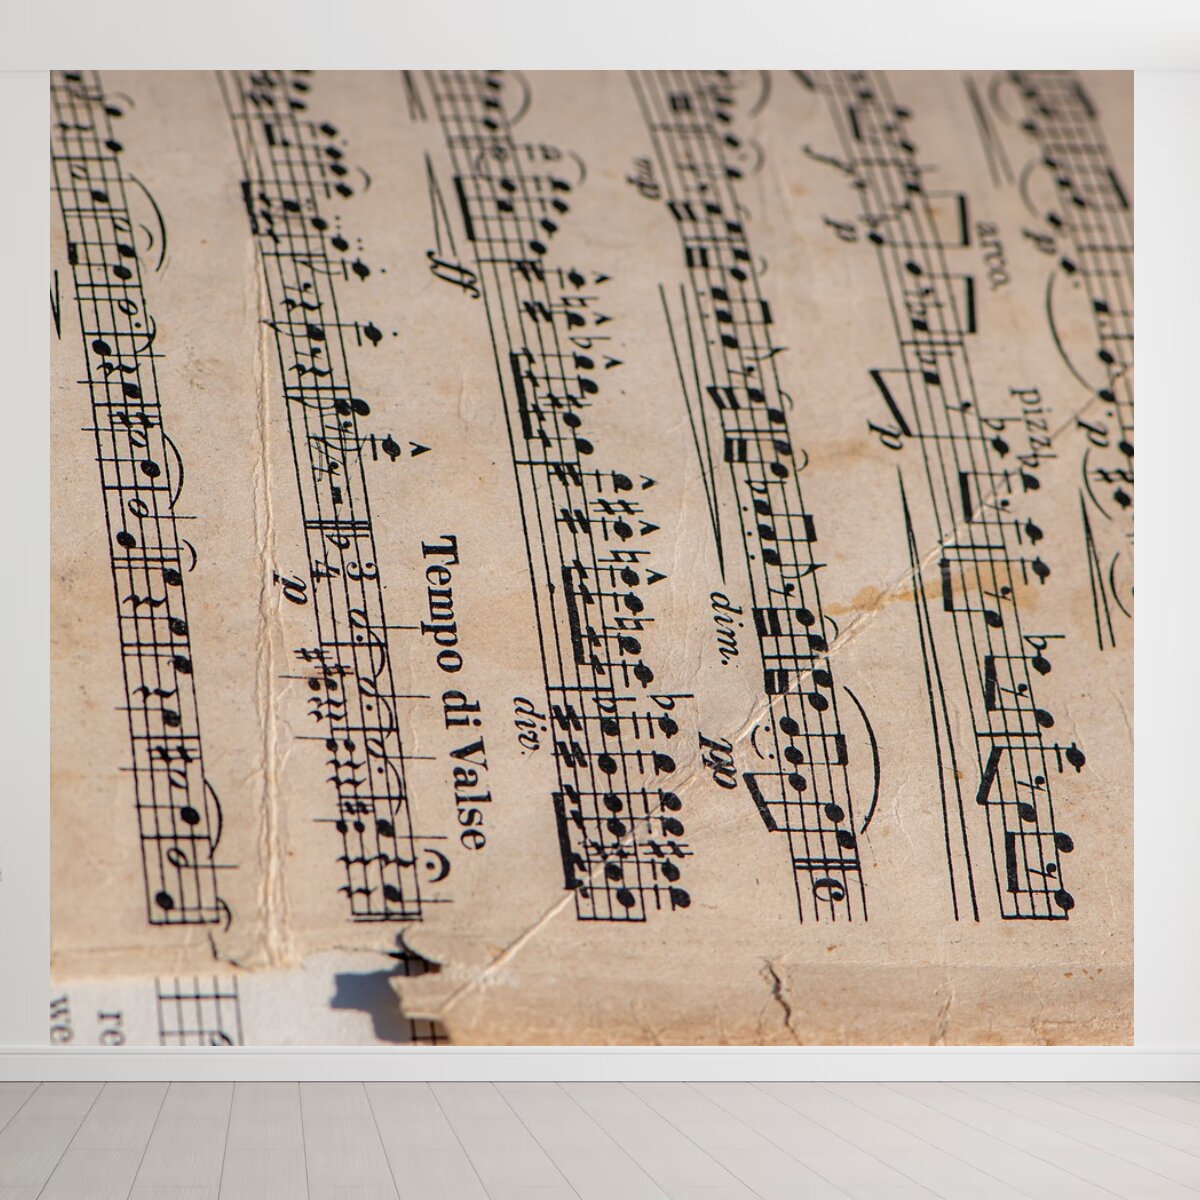 p p
arco pizz.
p p
mp dim. pp
ff div.
Tempo di Valse
3
4
p
re
we